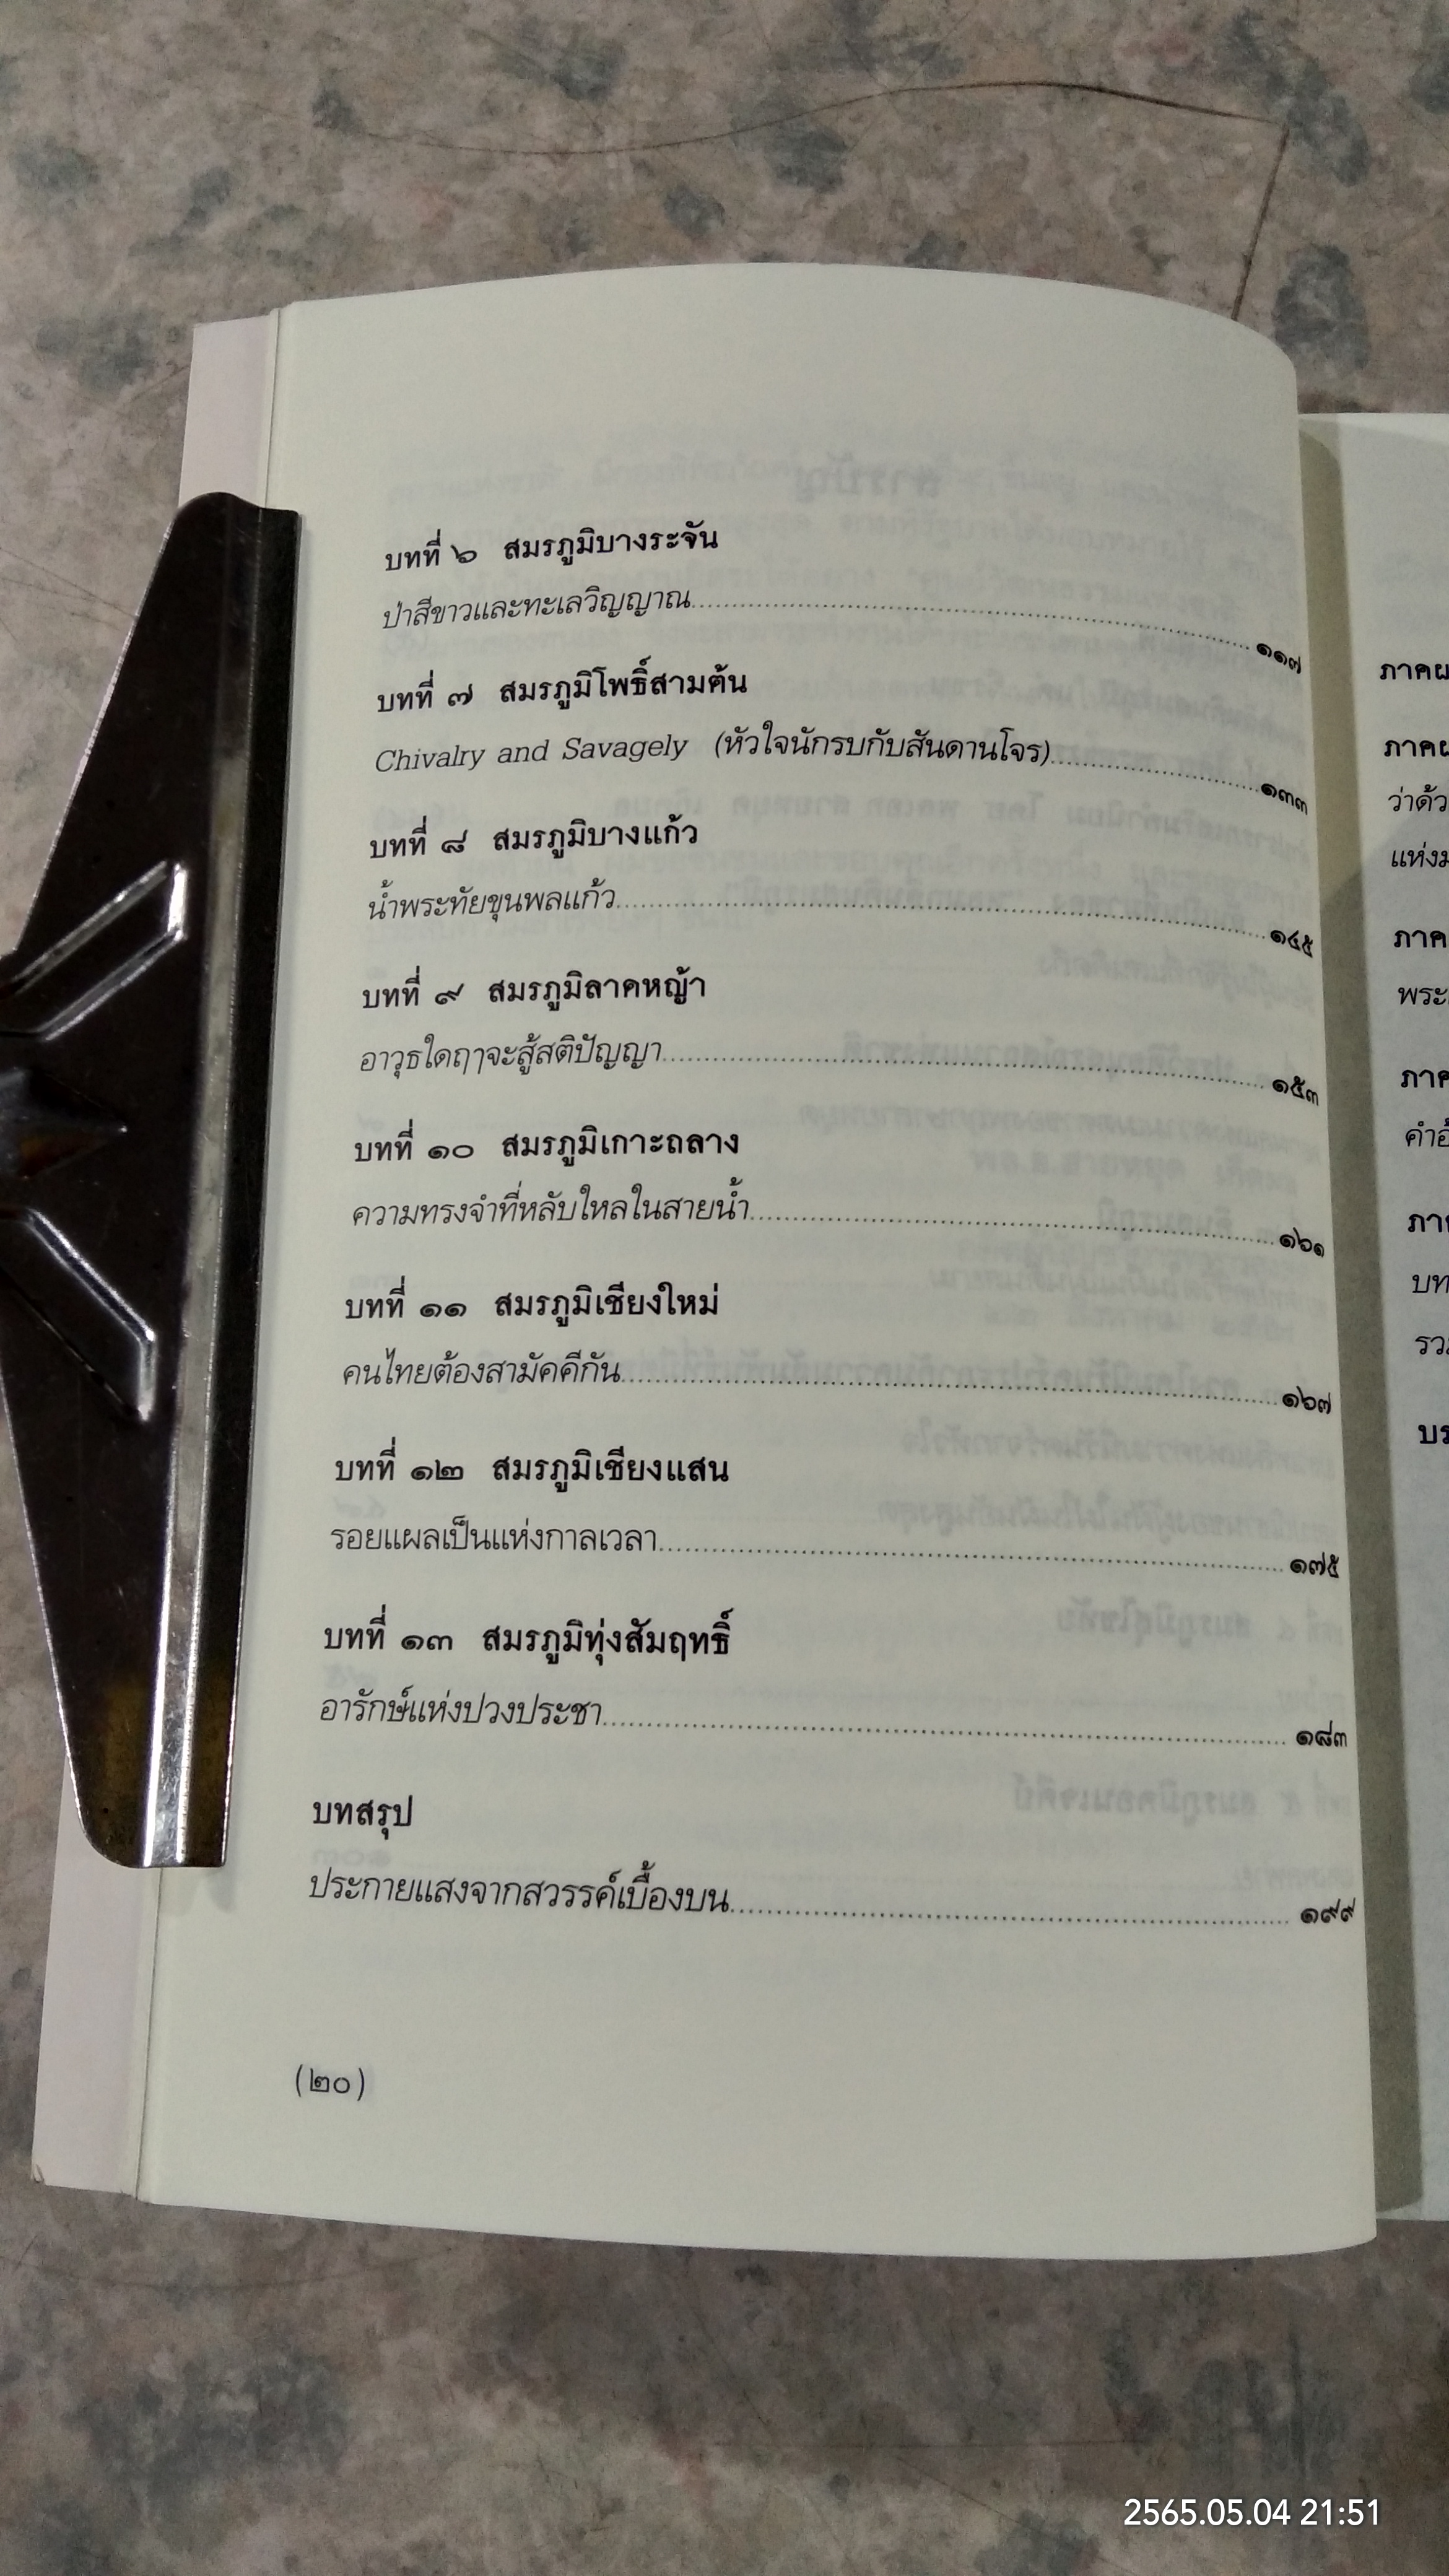 บทที่ ๖ สมรภูมิบางระจัน
ป่าสีขาวและทะเลวิญญาณ................................................๑๑๗
บทที่ ๗ สมรภูมิโพธิ์สามต้น
Chivalry and Savagely (หัวใจนักรบกับสันดานโจร)....................๑๓๓
บทที่ ๘ สมรภูมิบางแก้ว
น้ำพระทัยขุนพลแก้ว................................................๑๔๕
บทที่ ๙ สมรภูมิลาดหญ้า
อาวุธใดฤๅจะสู้สติปัญญา................................................๑๕๓
บทที่ ๑๐ สมรภูมิเกาะถลาง
ความทรงจำที่หลับใหลในสายน้ำ................................................๑๖๑
บทที่ ๑๑ สมรภูมิเชียงใหม่
คนไทยต้องสามัคคีกัน................................................๑๖๗
บทที่ ๑๒ สมรภูมิเชียงแสน
รอยแผลเป็นแห่งกาลเวลา................................................๑๗๕
บทที่ ๑๓ สมรภูมิทุ่งสัมฤทธิ์
อารักษ์แห่งปวงประชา................................................๑๘๓
บทสรุป
ประกายแสงจากสวรรค์เบื้องบน................................................๑๙๙
(๒๐)
ว่าด้ว
พระ
บท
2565.05.04 21:51